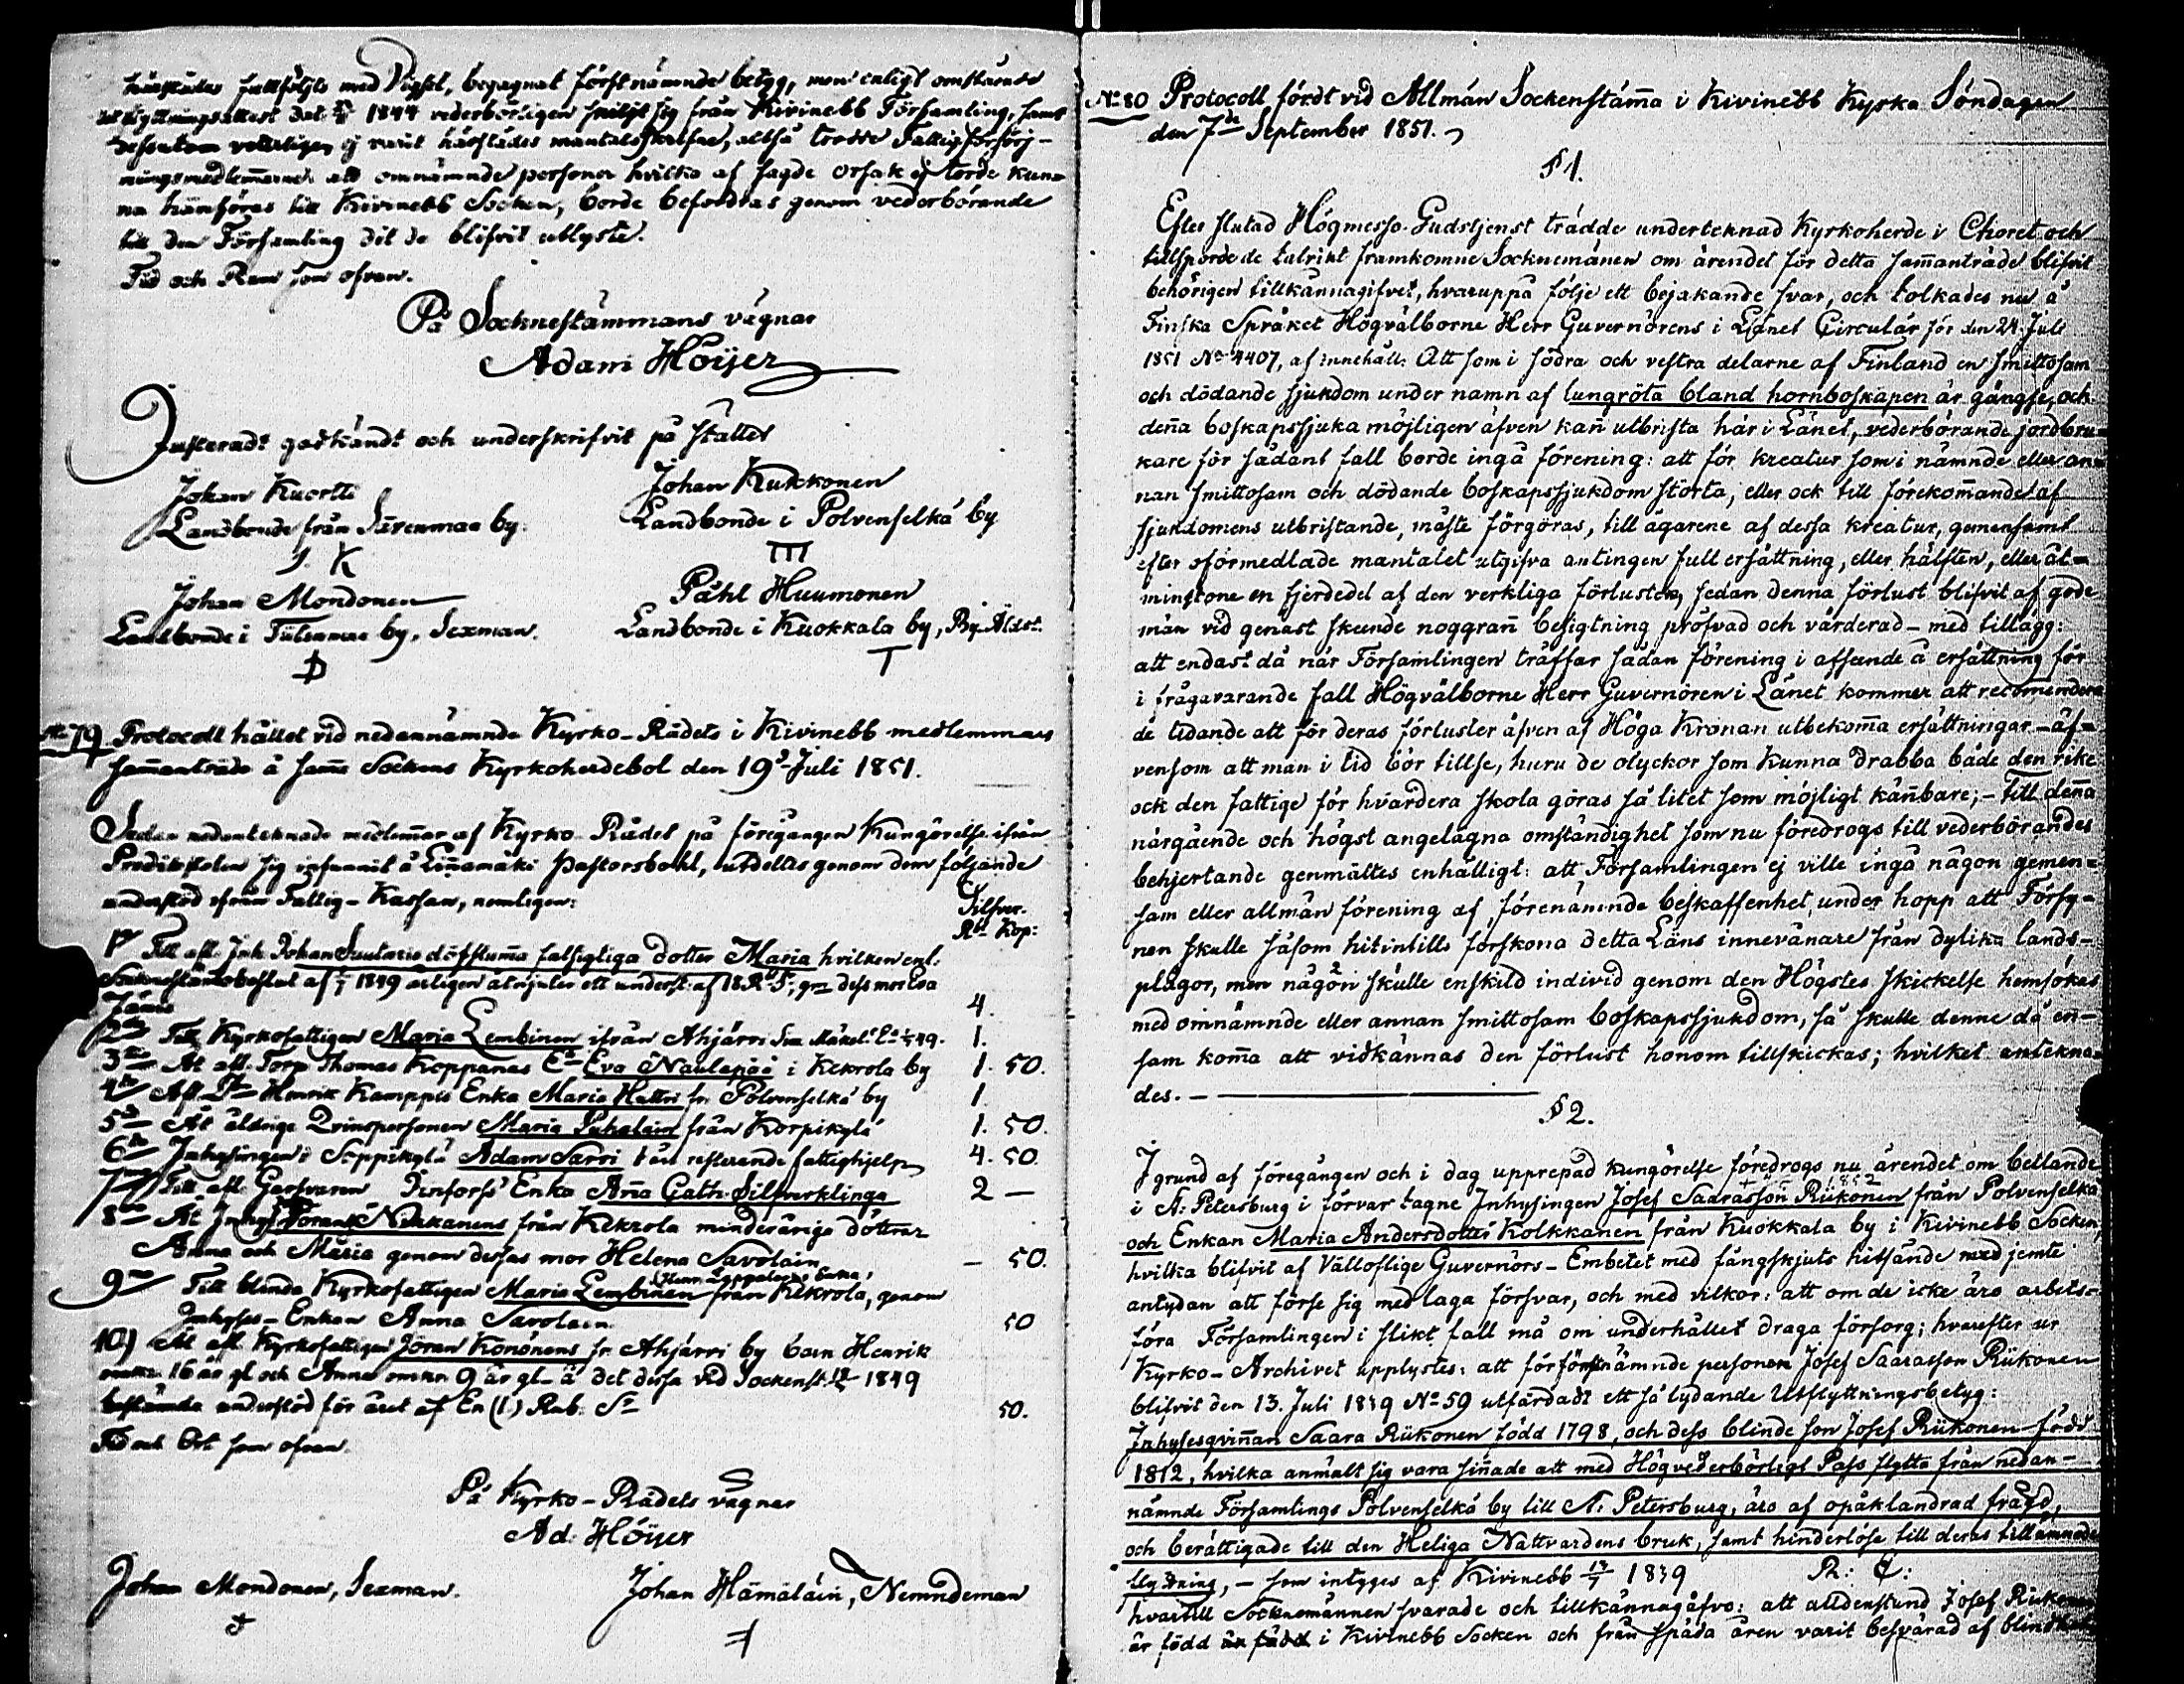 härstädes fullföljts med Pigsel, begagnat förstnämnde betyg, men enligt omständ
utflyttningsattest dat. 1844 vederbörligen skiljt sig från Kivinebb Församling, samt
dessutom veterligen ej varit härstädes mantalsskrifne, altså trodde Fattigförsörj-
ningsmedlem̄arne att omnämnde personer hvilka af sagde orsak ej torde kun-
na hänföras till Kivinebb Socken, borde befordras genom vederbörande
till den Församling dit de blifvit utlyste.
Tid och Rum som ofvan.
På Socknestämmans vägnar
Adam Höijer
Justeradt godkändt och underskrifvit på stället
Johan Kuortti
Landbonde från Järenmaa by.
J. K
Johan Kukkonen
Landbonde i Polvenselkä by
III
Johan Mondonen
Landbonde i Tulenmaa by, Sexman.
Påhl Huumonen
Landbonde i Kuokkala by, By Äldst.
T
No 79 Protocoll hållet vid nedannämnde Kyrko-Rådets i Kivinebb medlemmars
sam̄anträde å sam̄a Sockens Kyrkoherdebol den 19de Juli 1851.
Sedan nedantecknade medlem̄ar af Kyrko-Rådet på föregången Kungörelse ifrån
Predikstolen sig infunnit å Lin̄amäki Pastorsbohl, utdeltes genom dem följande
understöd ifrån Fattig-Kassan, nemligen:
Silfver.
Rbl Kop:
1o Till afl. Inh. Johan Suutaris döfstum̄a fatiga dotter Maria hvilken enl.
Sockenstäm̄obeslut af 1849 årligen åtnjuter ett underst. af 18 R. S., gm dess mor Eva
4.
2o Till Kyrkofattigen Maria Lembinen ifrån Ahjärvi 1.
3o At afl. Torp. Thomas Koppanas Ea Eva Naulapää i Kekrola by 1. 50.
4o Afl. Do Henrik Kamppis Enka Maria Hattri fr. Polvenselkä by 1.
5o At åldrige Qvinspersonen Maria Puhalain från Korpikylä 1. 50.
6o Inhysingen i Seppikylä Adam Sarri t. än resterande fattighjelp 4. 50.
7o Till afl. Garfvaren Dinfors' Enka Ana Cath. Silfverklinga 2 —
8o At Inhys. Jörans Nikkanens från Kekrola minderåriga döttrar
Anna och Maria genom dessas mor Helena Savolain — 50.
9o Till blinda Kyrkofattigen Maria Lembinen från Kekrola, genom
Inhyses-Enkan Anna Savolain. 50
10) At afl. Kyrkofattigen Jöran Konönens fr. Ahjärvi by barn Henrik
omkr. 16 år gl. och Anna omkr. 9 år gl. å det dessa vid Sockenst. 1849
bestämda understöd för året af En (1) Rub. Sr 50.
Tid och Ort som ofvan.
På Kyrko-Rådets vägnar
Ad: Höijer
Johan Mondonen, Sexman.
Johan Hämäläin, Nemndeman
No 80 Protocoll fördt vid Allmän Sockenstäm̄a i Kivinebb Kyrka Söndagen
den 7de September 1851.
§ 1.
Efter slutad Högmesso-Gudstjenst trädde undertecknad Kyrkoherde i Choret och
tillsporde de talrikt framkomne Socknemänen om ärendet för detta sam̄anträde blifvit
behörigen tillkännagifvet, hvaruppå följe ett bejakande svar, och tolkades nu å
Finska Språket Högvälborne Herr Guvernörens i Länet Circulär för den 24. Juli
1851 No 4407, af innehåll: Att som i södra och vestra delarne af Finland en smittosam
och dödande sjukdom under namn af lungröta bland hornboskapen är gängse, och
den̄a boskapssjuka möjligen äfven kan̄ utbrista här i Länet, vederbörande jordbru-
kare för sådant fall borde ingå förening: att för kreatur som i nämnde eller an-
nan smittosam och dödande boskapssjukdom störta, eller ock till förekom̄ande af
sjukdomens utbristande, måste förgöras, till ägarene af dessa kreatur, gemensamt
efter oförmedlade mantalet utgifva antingen full ersättning, eller hälften, eller åt-
minstone en fjerdedel af den verkliga förlusten, sedan denna förlust blifvit af gode
män vid genast skeende noggran̄ besigtning pröfvad och värderad – med tillägg:
att endast då när Församlingen träffar sådan förening i afseende å ersättning för
i frågavarande fall Högvälborne Herr Guvernören i Länet kommer att recom̄endera
de lidande att för deras förluster äfven af Höga Kronan utbekom̄a ersättningar – äf-
vensom att man i tid bör tillse, huru de olyckor som kunna drabba både den rike
ock den fattige för hvardera skola göras så litet som möjligt kän̄bare; – Till den̄a
närgående och högst angelägna omständighet som nu föredrogs till vederbörandes
behjertande genmältes enhälligt: att Församlingen ej ville ingå någon gemen-
sam eller allmän förening af förenämnde beskaffenhet, under hopp att Försy-
nen skulle såsom hitintills förskona detta Läns innevånare från dylika lands-
plågor, men någon skulle enskild individ genom den Högstes skickelse hemsökas
med omnämnde eller annan smittosam boskapssjukdom, så skulle denne då en-
sam kom̄a att vidkännas den förlust honom tillskickas; hvilket antekna-
des. —
§ 2.
I grund af föregången och i dag upprepad kungörelse föredrogs nu ärendet om betlande
i St. Petersburg i förvar tagne Inhysingen Josef Saarasson Riikonen från Polvenselkä
och Enkan Maria Andersdotter Kolkkanen från Kuokkala by i Kivinebb Socken,
hvilka blifvit af Välloflige Guvernörs-Embetet med fångskjuts hitsände med jemte
antydan att förse sig med laga försvar, och med vilkor: att om de icke äro arbets-
föra Församlingen i slikt fall må om underhållet draga försorg; hvarefter ur
Kyrko-Archivet upplystes: att för förstnämnde personen Josef Saarasson Riikonen
blifvit den 13. Juli 1839 No 59 utfärdadt ett så lydande Utflyttningsbetyg:
Inhysesqvin̄an Saara Riikonen född 1798, och dess blinde son Josef Riikonen född
1812, hvilka anmält sig vara sin̄ade att med Högvederbörligt Pass flytta från nedan-
nämnde Församlings Polvenselkä by till St. Petersburg, äro af oppåklandrad frägd,
och berättigade till den Heliga Nattvardens bruk, samt hinderlöse till deras tillämnade
flyttning, – som intyges af Kivinebb 13/7 1839 R: C:
hvartill Socknemännen svarade och tillkännagåfvo: att alldenstund Josef Riikonen
är född i Kivinebb Socken och från späda åren varit besvärad af blindhet